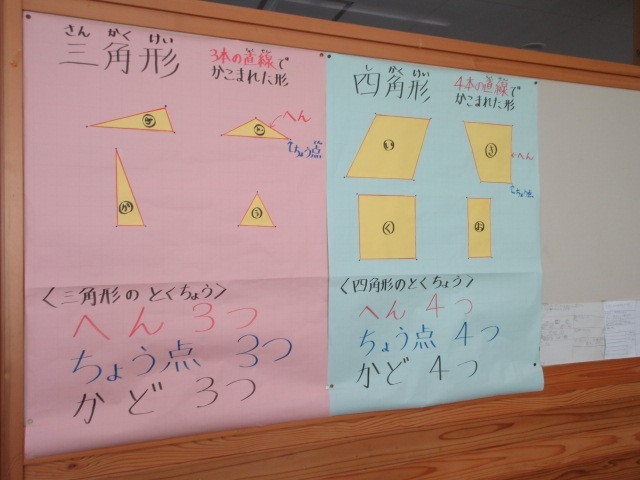 さん かく けい
三角形
3本の直線で
かこまれた形
へん
ちょう点
か
う
〈三角形のとくちょう〉
へん 3つ
ちょう点 3つ
かど 3つ
し かく けい
四角形
4本の直線で
かこまれた形
い
へん
ちょう点
く
お
〈四角形のとくちょう〉
へん 4つ
ちょう点 4つ
かど 4つ